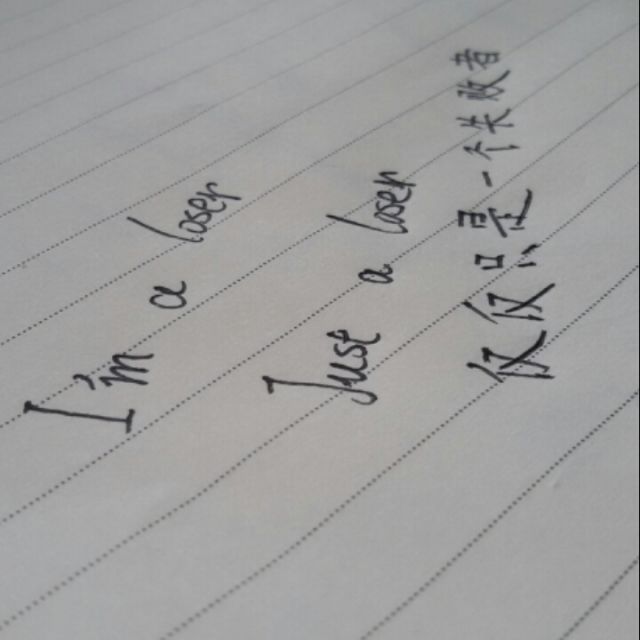 I'm a loser
Just a loser
仅仅只是一个失败者